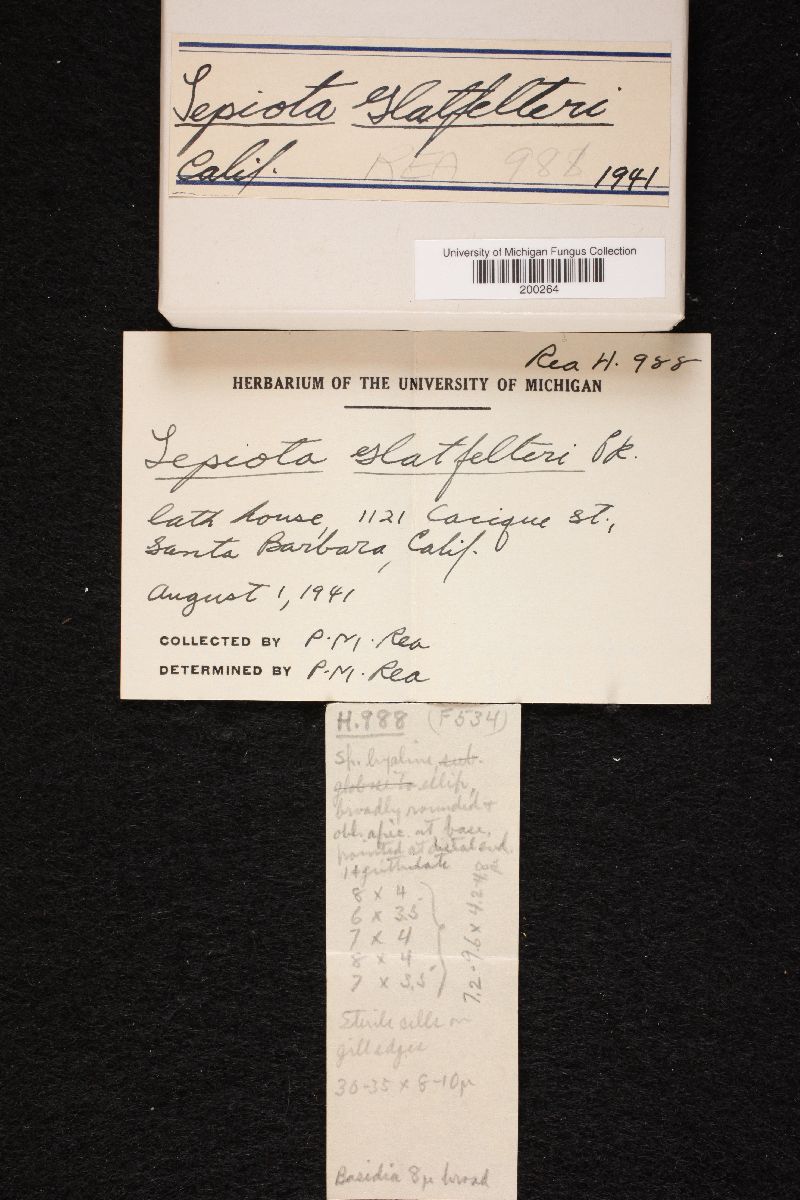 Lepiota Glatfelteri
Calif. REA 988 1941
University of Michigan Fungus Collection
200264
Rea H. 988
HERBARIUM OF THE UNIVERSITY OF MICHIGAN
Lepiota Glatfelteri Pk.
lath house, 1121 Cacique St.,
Santa Barbara, Calif.
August 1, 1941
COLLECTED BY P.M. Rea
DETERMINED BY P.M. Rea
H.988 (F534)
Sp. hyaline, sub-
globose to ellip,
broadly rounded &
obl. apic. at base,
pointed at distal end.
1+guttulate
8 x 4
6 x 3.5
7 x 4
8 x 4
7 x 3.5
7.2-9.6 x 4.2-4.8
Sterile cells on
gill edges
30-35 x 8-10µ
Basidia 8µ broad